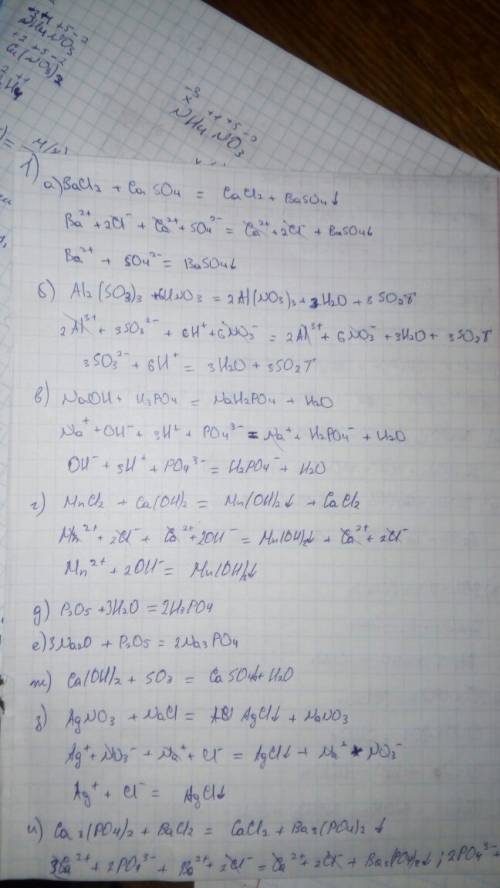 -3 +1 +5 -2
NH4NO3
+2 +5 -2
(NO3)2
-3 +1 +5 -2
x
NH4NO3
1)
а) BaCl2 + CaSO4 = CaCl2 + BaSO4↓
Ba²⁺ + 2Cl⁻ + Ca²⁺ + SO4²⁻ = Ca²⁺ + 2Cl⁻ + BaSO4↓
Ba²⁺ + SO4²⁻ = BaSO4↓
б) Al2(SO3)3 + 6HNO3 = 2Al(NO3)3 + 3H2O + 3SO2↑
2Al³⁺ + 3SO3²⁻ + 6H⁺ + 6NO3⁻ = 2Al³⁺ + 6NO3⁻ + 3H2O + 3SO2↑
3SO3²⁻ + 6H⁺ = 3H2O + 3SO2↑
в) NaOH + H3PO4 = NaH2PO4 + H2O
Na⁺ + OH⁻ + 3H⁺ + PO4³⁻ = Na⁺ + H2PO4⁻ + H2O
OH⁻ + 3H⁺ + PO4³⁻ = H2PO4⁻ + H2O
г) MnCl2 + Ca(OH)2 = Mn(OH)2↓ + CaCl2
Mn²⁺ + 2Cl⁻ + Ca²⁺ + 2OH⁻ = Mn(OH)2↓ + Ca²⁺ + 2Cl⁻
Mn²⁺ + 2OH⁻ = Mn(OH)2↓
д) P2O5 + 3H2O = 2H3PO4
е) 3Na2O + P2O5 = 2Na3PO4
ж) Ca(OH)2 + SO3 = CaSO4↓ + H2O
з) AgNO3 + NaCl = AgCl↓ + NaNO3
Ag⁺ + NO3⁻ + Na⁺ + Cl⁻ = AgCl↓ + Na⁺ + NO3⁻
Ag⁺ + Cl⁻ = AgCl↓
и) Ca3(PO4)2 + BaCl2 = CaCl2 + Ba3(PO4)2↓
3Ca²⁺ + 2PO4³⁻ + Ba²⁺ + 2Cl⁻ = Ca²⁺ + 2Cl⁻ + Ba3(PO4)2↓; 2PO4³⁻ +